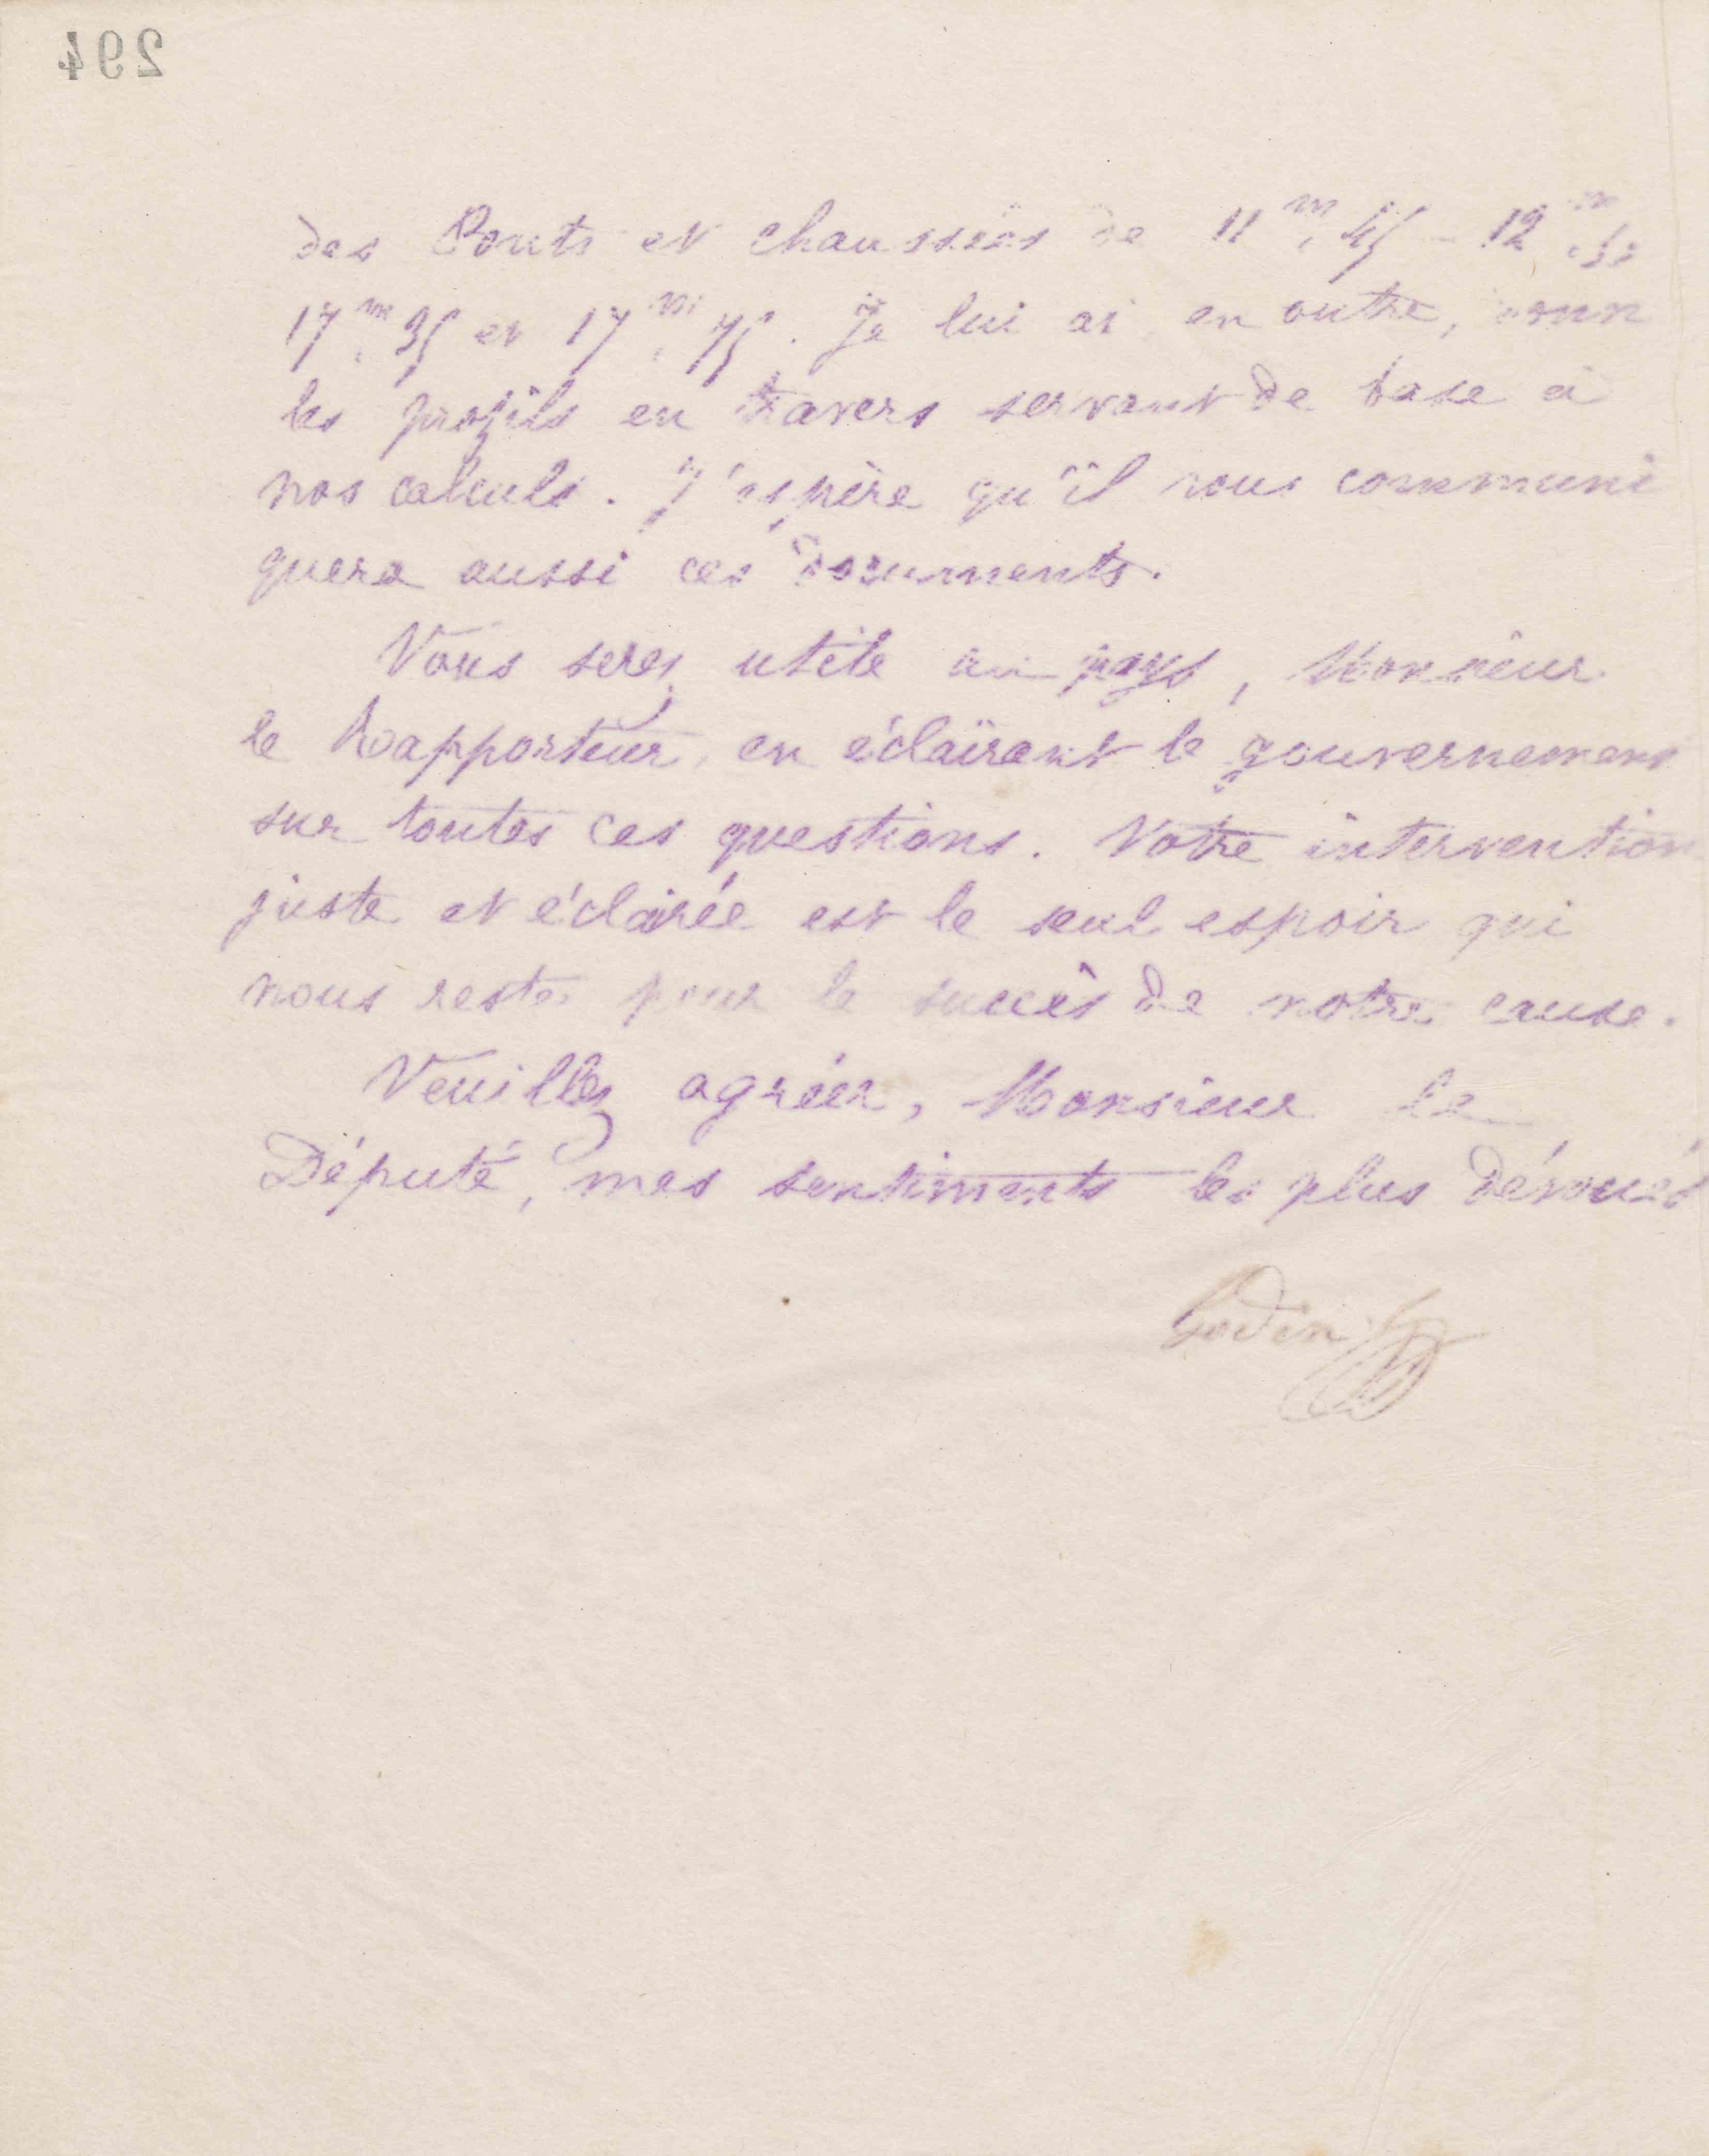 294
des Ponts et chaussées de 11 m, 45 - 12 m
17 m, 35 et 17 m, 75. Je lui ai en outre,
les profils en travers servant de base à
nos calculs. J'espère qu'il vous communi
quera aussi ces documents.
Vous serez utile au pays, Monsieur
le Rapporteur, en éclairant le gouvernement
sur toutes ces questions. Votre intervention
juste et éclairée est le seul espoir qui
nous reste pour le succès de notre cause.
Veuillez agréer, Monsieur le
Député, mes sentiments les plus dévoués
Godin